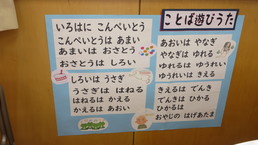 ことば遊びうた
いろはに こんぺいとう
こんぺいとうは あまい
あまいは おさとう
おさとうは しろい
しろいは うさぎ
うさぎは はねる
はねるは かえる
かえるは あおい
あおいは やなぎ
やなぎは ゆれる
ゆれるは ゆうれい
ゆうれいは きえる
きえるは でんき
でんきは ひかる
ひかるは
おやじの はげあたま